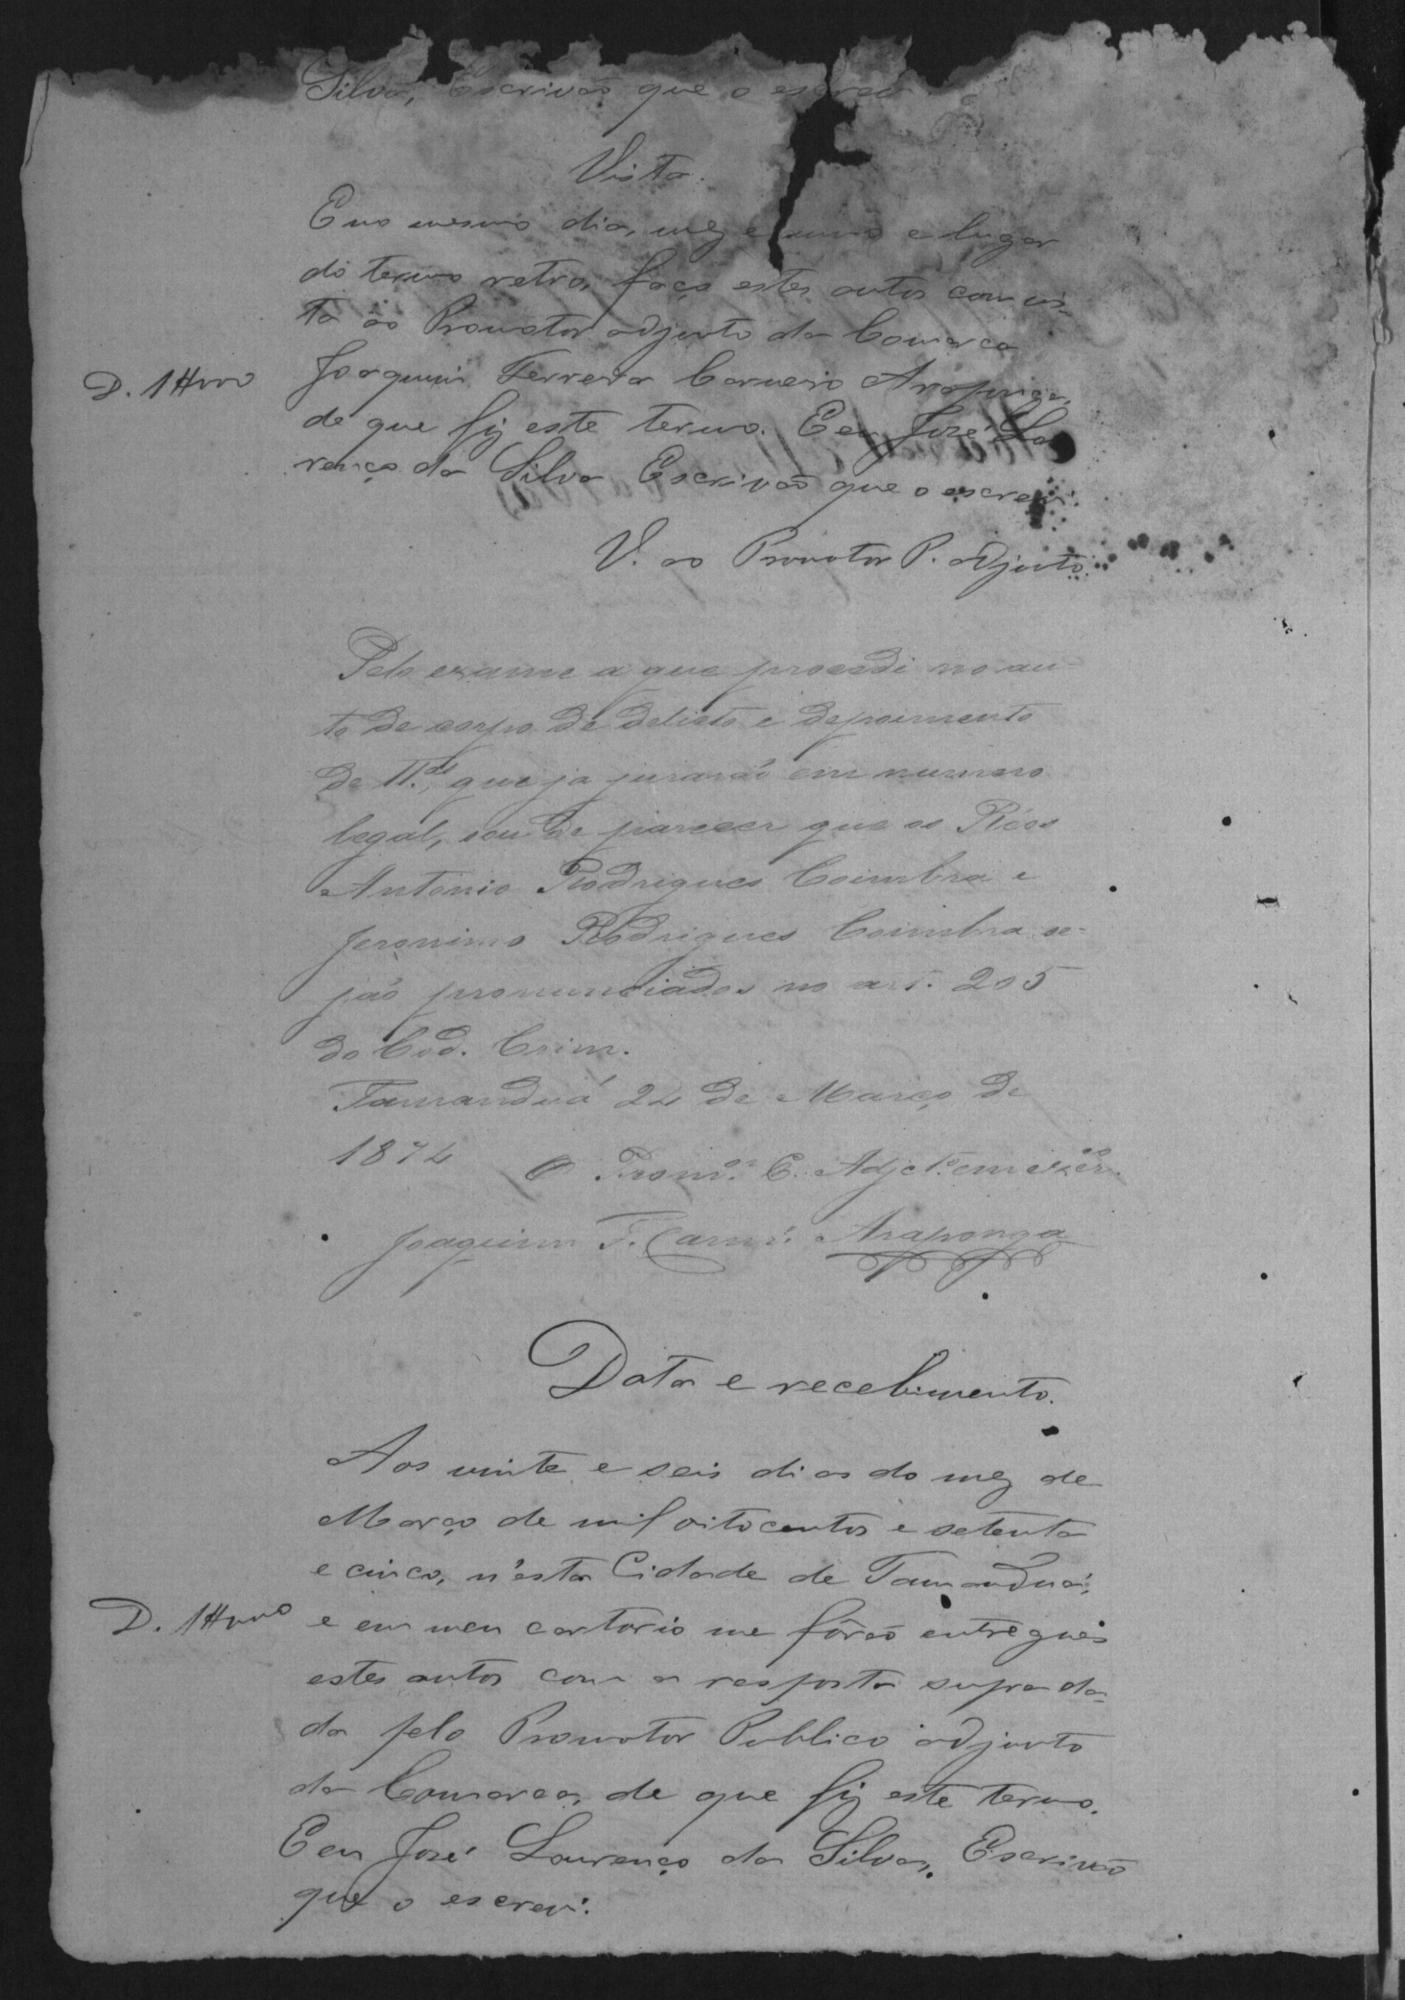 Silva, Escrivão que o escrevi
Vista.
E no mesmo dia, mez e anno e lugar
do termo retro, faço estes autos com vis-
ta ao Promotor adjunto da Comarca
Joaquim Ferreira Carneiro Araponga,
de que fiz este termo. E eu José Lou
renço da Silva Escrivão que o escrevi.
V. ao Promotor P. adjunto.
Pelo exame a que procedi no au-
to de corpo de delicto e depoimento
de TT.as que ja jurarão em numero
legal, sou de parecer que os Réos
Antonio Rodrigues Coimbra e
Jeronimo Rodrigues Coimbra se-
jão pronunciados no art. 205
do Cod. Crim.
Tamanduá 24 de Março de
1874 O Prom.or C. Adjcto. em exer.co
Joaquim F. Carn.ro Araponga
Data e recebimento.
Aos vinte e seis dias do mez de
Março de mil oitocentos e setenta
e cinco, n'esta Cidade de Tamanduá,
e em meu cartorio me fôrão entregues
estes autos com a resposta supra da-
da pelo Promotor Publico adjunto
da Comarca, de que fiz este termo.
E eu José Lourenço da Silva, Escrivão
que o escrevi.